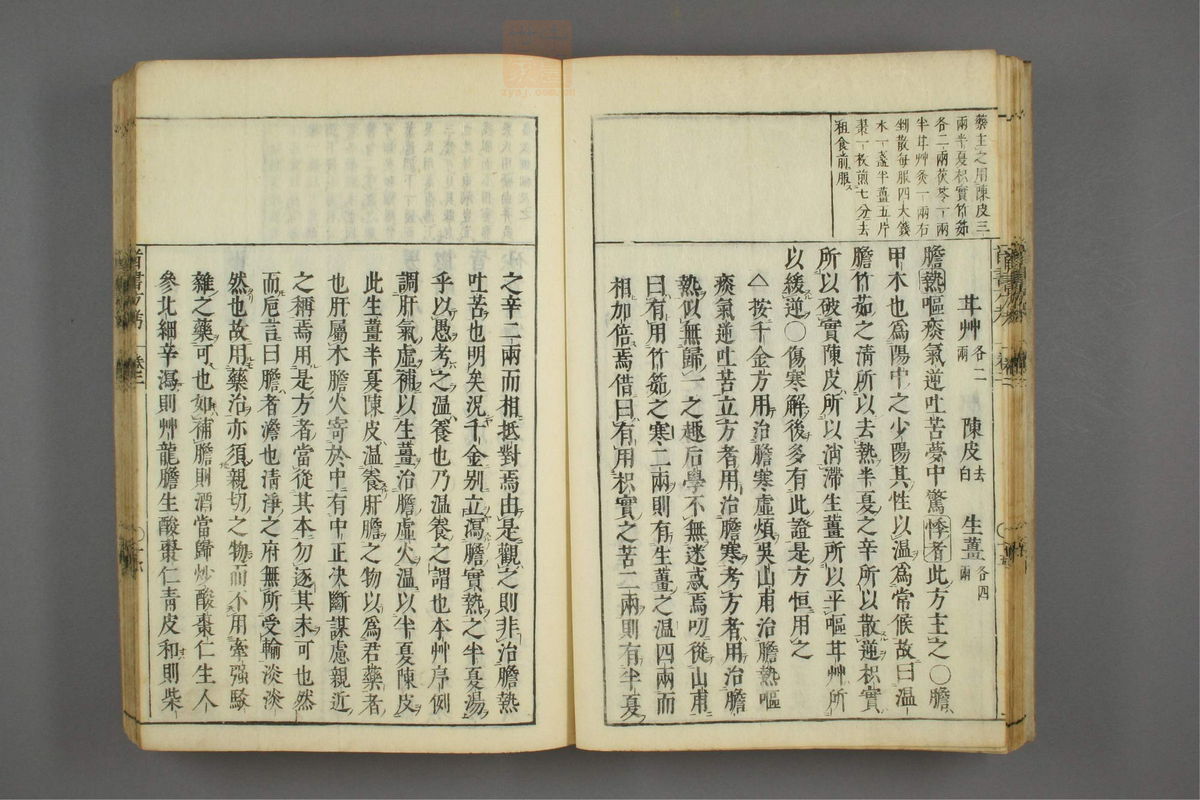 藥主之用陳皮三
兩半夏枳實竹茹
各二兩茯苓一兩
半甘艸炙一兩右
剉散每服四大錢
水一盞半薑五片
棗一枚煎七分去
柤食前服
甘艸各二兩 陳皮去白 生薑各四兩
膽熱嘔痰氣逆吐苦夢中驚悸者此方主之○膽
甲木也爲陽中之少陽其性以温爲常候故曰温
膽竹茹之清所以去熱半夏之辛所以散逆枳實
所以破實陳皮所以消滯生薑所以平嘔甘艸所
以緩逆○傷寒解後多有此證是方恒用之
△按千金方用治膽寒虛煩吳山甫治膽熱嘔
痰氣逆吐苦立方者用治膽寒考方者用治膽
熱似無歸一之趣后學不無迷惑焉叨從山甫
曰有用竹茹之寒二兩則有生薑之温四兩而
相加倍焉借曰有用枳實之苦二兩則有半夏
之辛二兩而相抵對焉由是觀之則非治膽熱
吐苦也明矣況千金别立瀉膽實熱之半夏湯
乎以愚考之温養也乃温養之謂也本艸序例
調肝氣虛補以生薑治膽虛火温以半夏陳皮
此生薑半夏陳皮温養肝膽之物以爲君藥者
也肝屬木膽火寄於中有中正决斷謀慮親近
之稱焉用是方者當從其本勿逐其末可也然
而巵言曰膽者澹也清淨之府無所受輸淡淡
然也故用藥治亦須親切之物而不用牽强駁
雜之藥可也如補膽則酒當歸炒酸棗仁生人
參北細辛瀉則艸龍膽生酸棗仁青皮和則柴